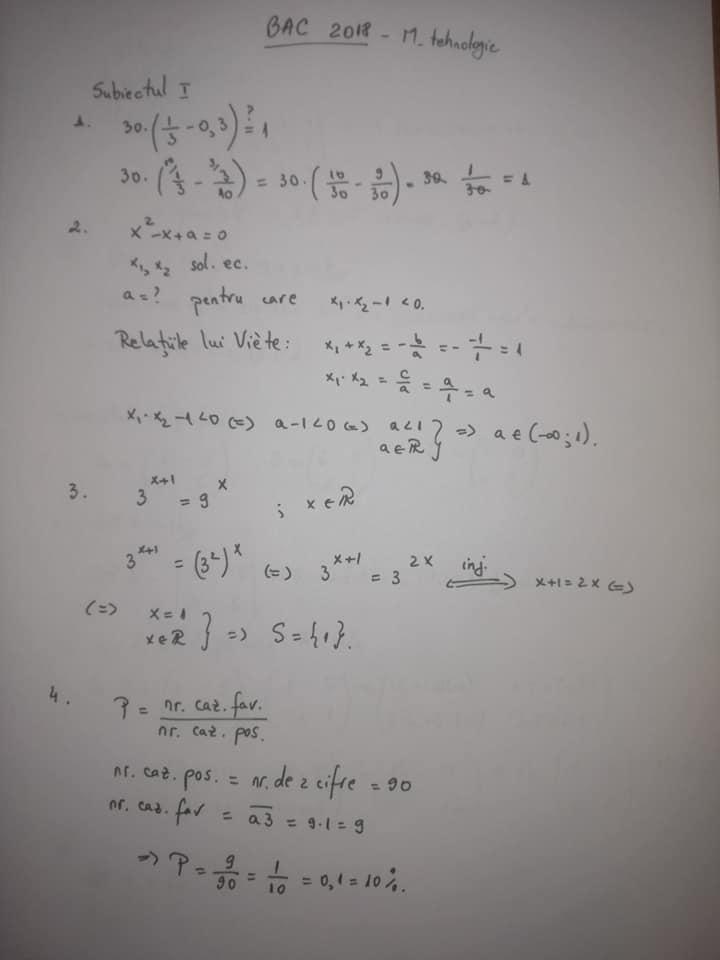 BAC 2018 - M. tehnologic
Subiectul I
1. 30·(1/3 - 0,3) ?= 1
30·(10/1/3 - 3/3/10) = 30·(10/30 - 9/30) = 30 1/30 = 1
2. x²-x+a=0
x₁, x₂ sol. ec.
a=? pentru care x₁·x₂-1<0.
Relațiile lui Viète: x₁+x₂ = -b/a = - -1/1 = 1
x₁·x₂ = c/a = a/1 = a
x₁·x₂-1<0 (=) a-1<0 (=) a<1
a∈ℝ } => a∈(-∞;1).
3. 3^(x+1) = 9^x ; x∈ℝ
3^(x+1) = (3²)^x (=) 3^(x+1) = 3^(2x) <=inj.=> x+1=2x (=)
(=) x=1
x∈ℝ } => S={1}.
4. P = nr. caz. fav. / nr. caz. pos.
nr. caz. pos. = nr. de 2 cifre = 90
nr. caz. fav = a̅3̅ = 9·1 = 9
=> P = 9/90 = 1/10 = 0,1 = 10%.